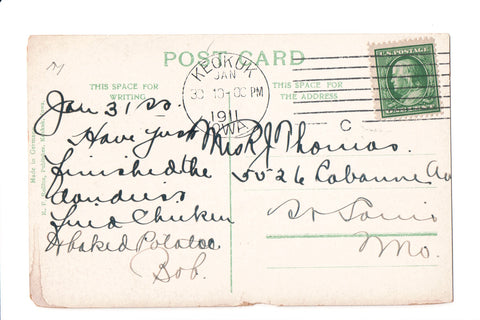 POST CARD
THIS SPACE FOR
WRITING
THIS SPACE FOR
THE ADDRESS
KEOKUK
JAN
30 10-00 PM
1911
IOWA
C
U.S. POSTAGE
Made in Germany
Jan 31
Have just
finished the
dandiest
fried Chicken
& baked Potatoe
Bob.
Mrs R J Thomas.
5526 Cabanne Av
St Louis
Mo.